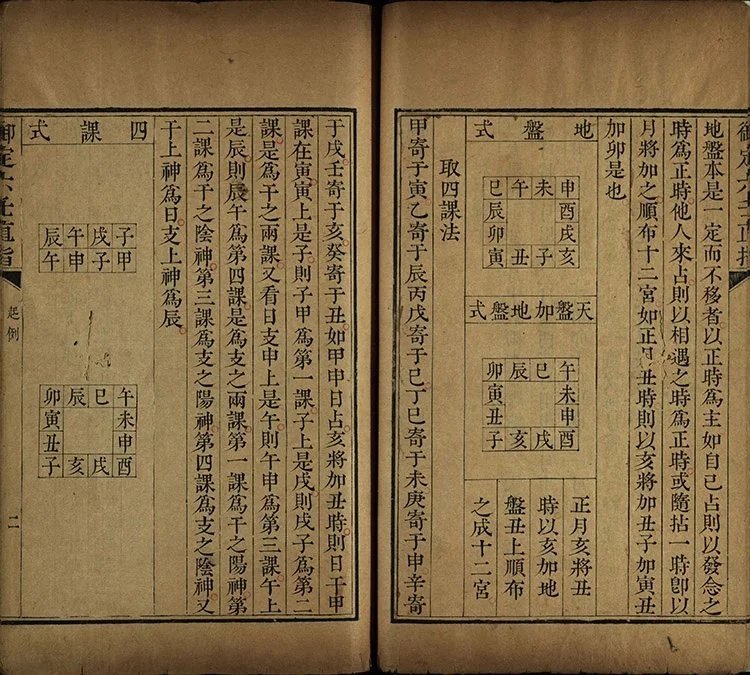 地盤本是一定而不移者以正時爲主如自己占則以發念之
時爲正時他人來占則以相遇之時爲正時或隨拈一時卽以
月將加之順布十二宮如正月丑時則以亥將加丑子加寅丑
加卯是也
地盤式
巳午未申
辰酉
卯戌
寅丑子亥
天盤加地盤式
卯辰巳午
寅未
丑申
子亥戌酉
正月亥將丑
時以亥加地
盤丑上順布
之成十二宮
取四課法
甲寄于寅乙寄于辰丙戊寄于巳丁己寄于未庚寄于申辛寄
于戌壬寄于亥癸寄于丑如甲申日占亥將加丑時則日干甲
課在寅寅上是子則子甲爲第一課子上是戌則戌子爲第二
課是爲干之兩課又看日支申上是午則午申爲第三課午上
是辰則辰午爲第四課是爲支之兩課第一課爲干之陽神第
二課爲干之陰神第三課爲支之陽神第四課爲支之陰神又
干上神爲日支上神爲辰
四課式
辰午戌子
午申子甲
卯辰巳午
寅未
丑申
子亥戌酉
御定六壬直指
起例
二